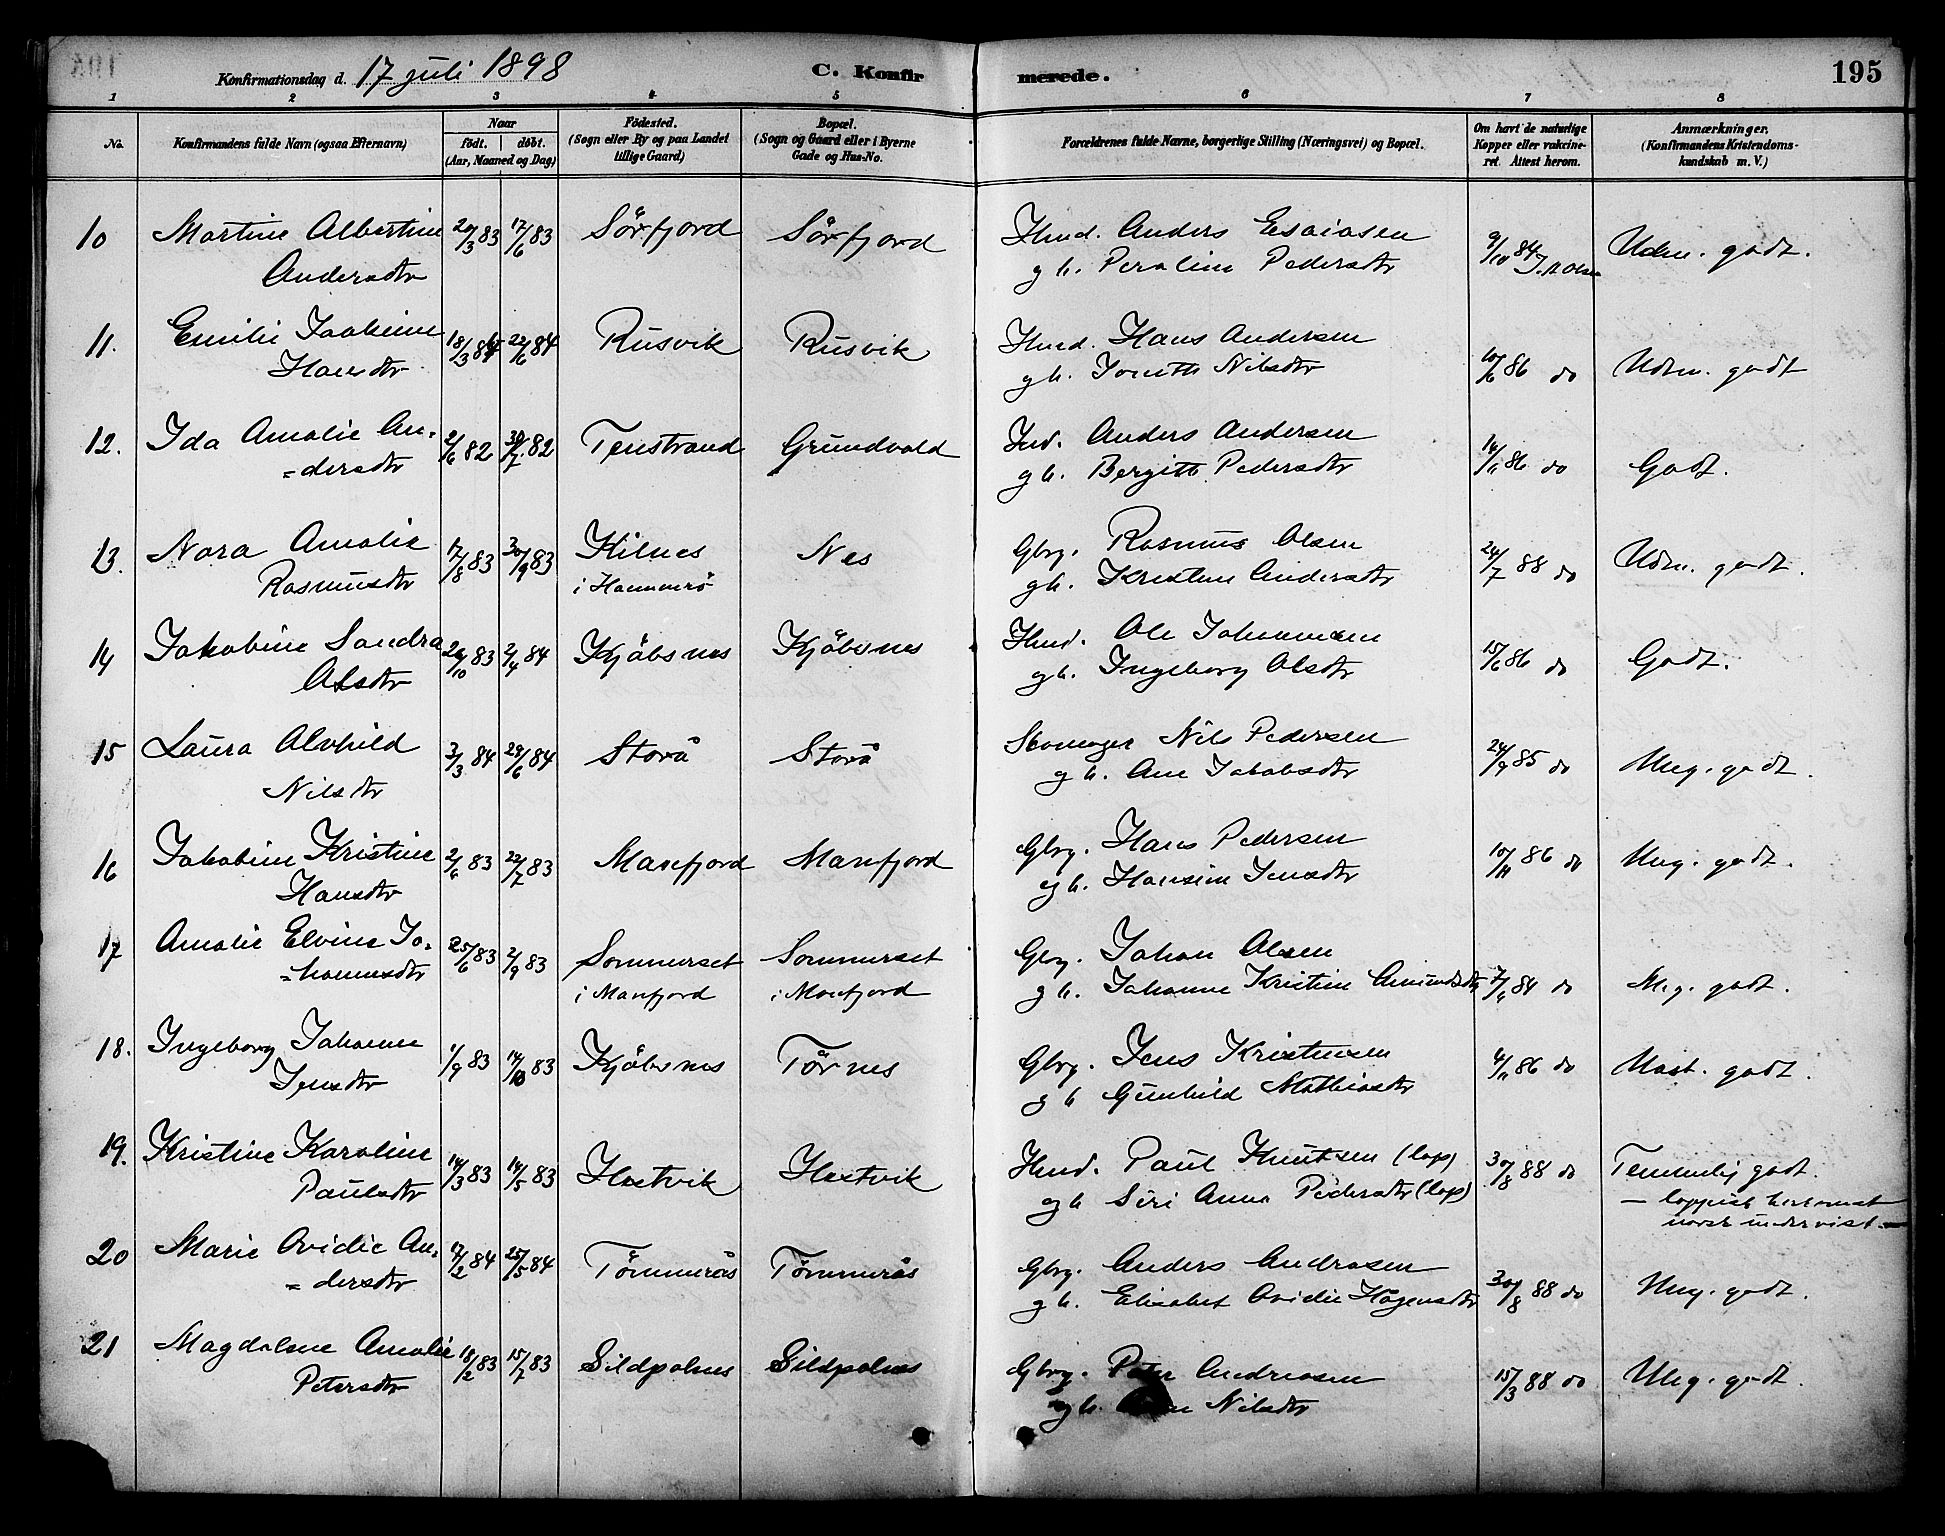 Konfirmationsdag d. 17 juli 1898 C. Konfirmerede. 195
1 2 3 4 5 6 7 8
No. Konfirmandens fulde Navn (ogsaa Efternavn) Naar født. døbt. (Aar, Maaned og Dag) Födested. (Sogn eller By og paa Landet tillige Gaard) Bopæl. (Sogn og Gaard eller i Byerne Gade og Hus-No. Forældrenes fulde Navne, borgerlige Stilling (Næringsvei) og Bopæl. Om havt de naturlige Kopper eller vakcineret. Attest herom. Anmærkninger. (Konfirmandens Kristendomskundskab m. V.)
10 Martine Albertine 20/3 83 17/6 83 Sörfjord Sörfjord Hmd. Anders Esaiasen 9/10 84 Udm. godt.
Andersdtr g h. Peroline Pedersdtr
11. Emilie Joakime 18/3 84 22/6 84 Rusvik Rusvik Hmd. Hans Andersen 10/6 86 do Udm. godt
Hansdtr g h. Nilsdtr
12. Ida Amalie An- 2/6 82 30/7 82 Tenstrand Grundvold Ind. Anders Andersen 14/11 86 do Godt.
=dersdtr g h. Bergitte Pedersdtr
13. Nora Amalie 17/8 83 30/9 83 Hilnes Nes Gbrg. Rasmus Olsen 24/7 88 do Udm. godt.
Rasmusdtr i Hammerö g h. Kristine Andersdtr
14 Jakobine Sandra 20/10 83 2/4 84 Kjöbsnes Kjöbsnes Hmd. Ole Johannesen 15/6 86 do Godt.
Olsdtr g h. Ingeborg Olsdtr
15 Laura Alvhild 3/3 84 29/6 84 Storå Storå Nils Pedersen 24/9 85 do Meg. godt.
Nilsdtr g h. Ane Jakobsdtr
16 Jakobine Kristine 2/6 83 22/7 83 Manfjord Manfjord Gbrg. Hans Pedersen 10/11 86 do Meg. godt.
Hansdtr g h. Hansine Jensdtr
17 Amalie Elvine Jo- 25/6 83 2/9 83 Sommerset Sommerset Gbrg. Johan Olsen 7/9 84 do Meg. godt.
=hannesdtr i Manfjord i Manfjord g h. Johanne Kristine Amundsdtr
18. Ingeborg Johanne 1/9 83 14/10 83 Kjöbsnes Törnes Gbrg. Jens Kristensen 4/11 86 do godt.
Jensdtr g h Gunhild Mathiasdtr
19. Kristine Karoline 14/3 83 14/5 83 Hestvik Hestvik Hmd. Paul Knutsen (lap) 30/8 88 do Temmelig godt.
Paulsdtr g h Siri Anna Pedersdtr (lap) – lappisk
norsk undervist –
20 Marie Ovidie An- 17/2 84 25/5 84 Tömmerås Tömmerås Gbrg. Anders Andreasen 30/8 88 do Meg. godt.
=dersdtr g h. Elisabet Ovidie Hågensdtr
21 Magdalene Amalie 18/2 83 15/7 83 Sildpolnes Sildpolnes Gbrg. Peter Andreasen 15/3 88 do Meg. godt.
Petersdtr g h. Nilsdtr